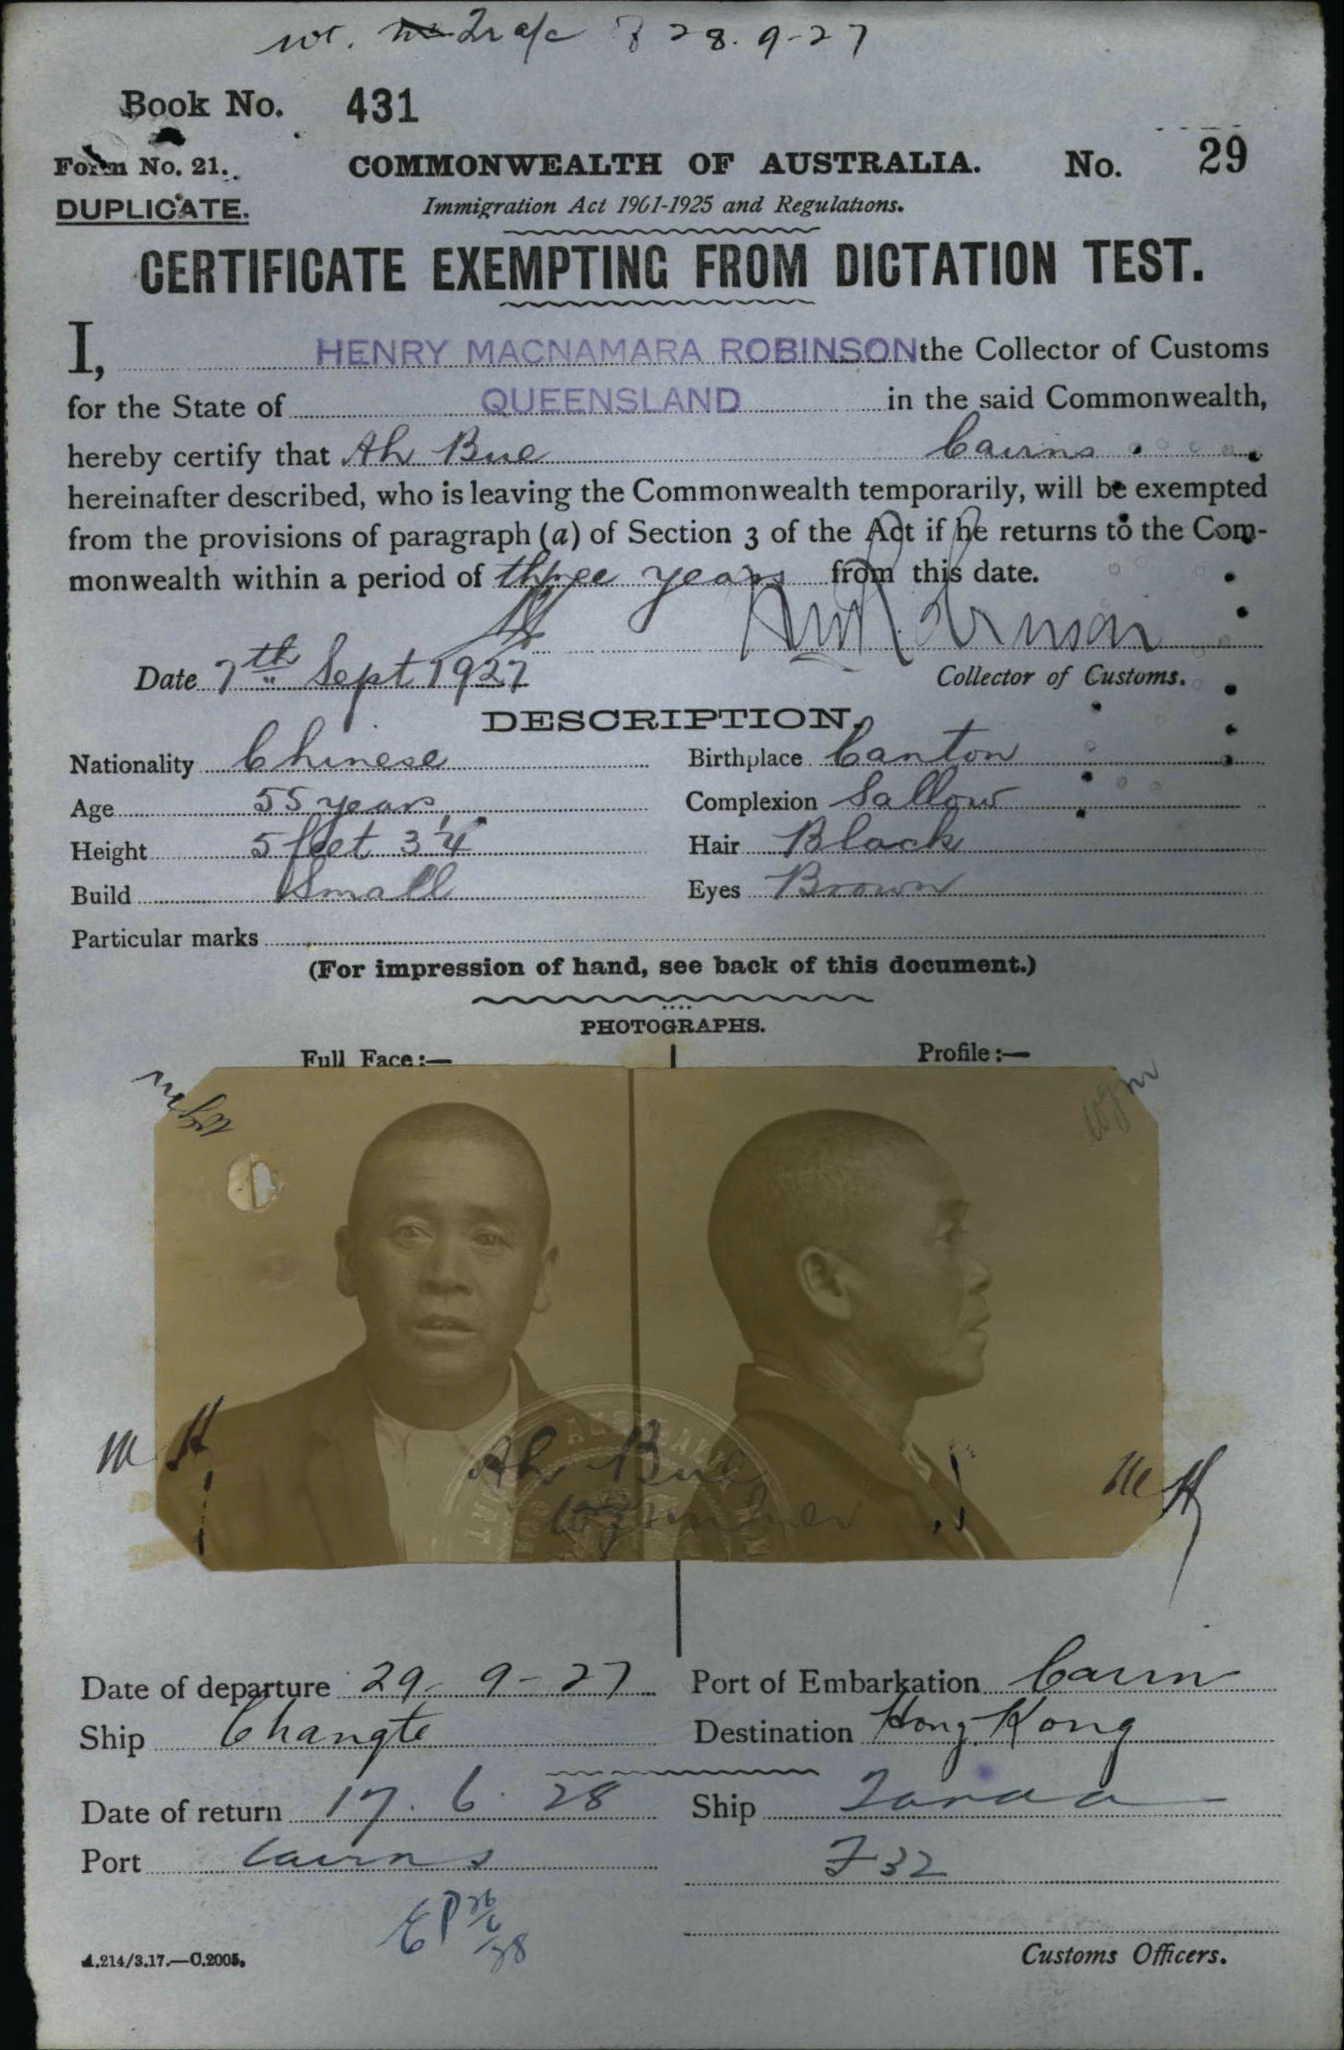 28.9-27
Book No. 431
Form No. 21. COMMONWEALTH OF AUSTRALIA. No. 29
DUPLICATE. Immigration Act 1901-1925 and Regulations.
CERTIFICATE EXEMPTING FROM DICTATION TEST.
I, HENRY MACNAMARA ROBINSON the Collector of Customs
for the State of QUEENSLAND in the said Commonwealth,
hereby certify that Ah Bue Cairns
hereinafter described, who is leaving the Commonwealth temporarily, will be exempted
from the provisions of paragraph (a) of Section 3 of the Act if he returns to the Com-
monwealth within a period of three years from this date.
Date 7th Sept 1927 Collector of Customs.
DESCRIPTION.
Nationality Chinese Birthplace Canton
Age 55 years Complexion Sallow
Height 5 feet 3 1/4" Hair Black
Build Small Eyes Brown
Particular marks
(For impression of hand, see back of this document.)
PHOTOGRAPHS.
Full Face:— Profile:—
M H M H
Ah Bue
Date of departure 29-9-27 Port of Embarkation Cairns
Ship Changte Destination Hong Kong
Date of return 17.6.28 Ship Tanda
Port Cairns F32
A.214/3.17.—C.2005. Customs Officers.